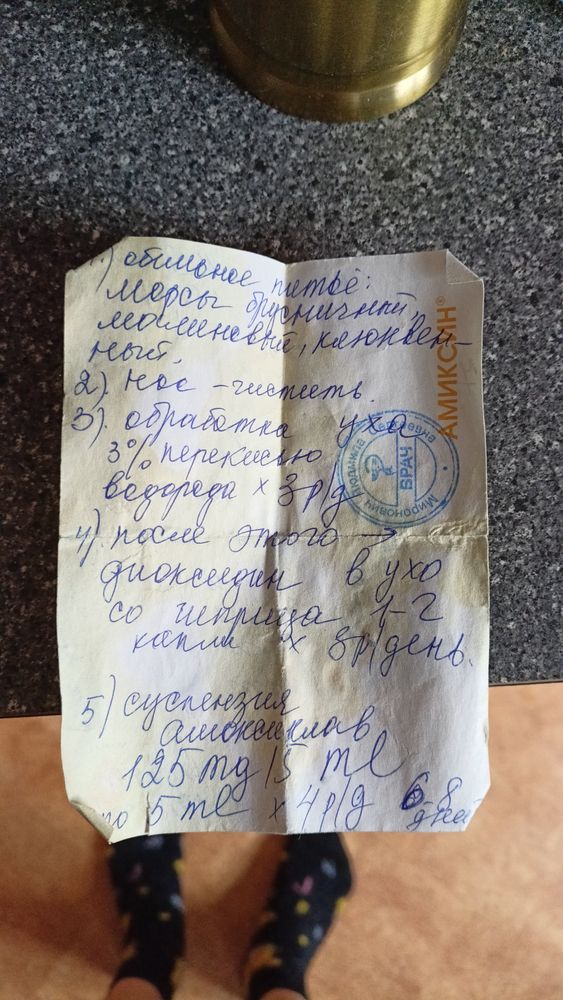 1) обильное питьё:
морсы брусничный,
малиновый, клюквен-
ный.
2) Нос - чистить.
3) обработка уха
3% перекисью
водорода x 3 р/д
4) после этого →
диоксидин в ухо
со шприца 1-2
капли x 3р/день.
5) суспензия
амоксиклав
125 mg/5 ml
по 5 ml x 4 р/д 6 8
дней
АМИКСИН®
Миронович Людмила
ВРАЧ